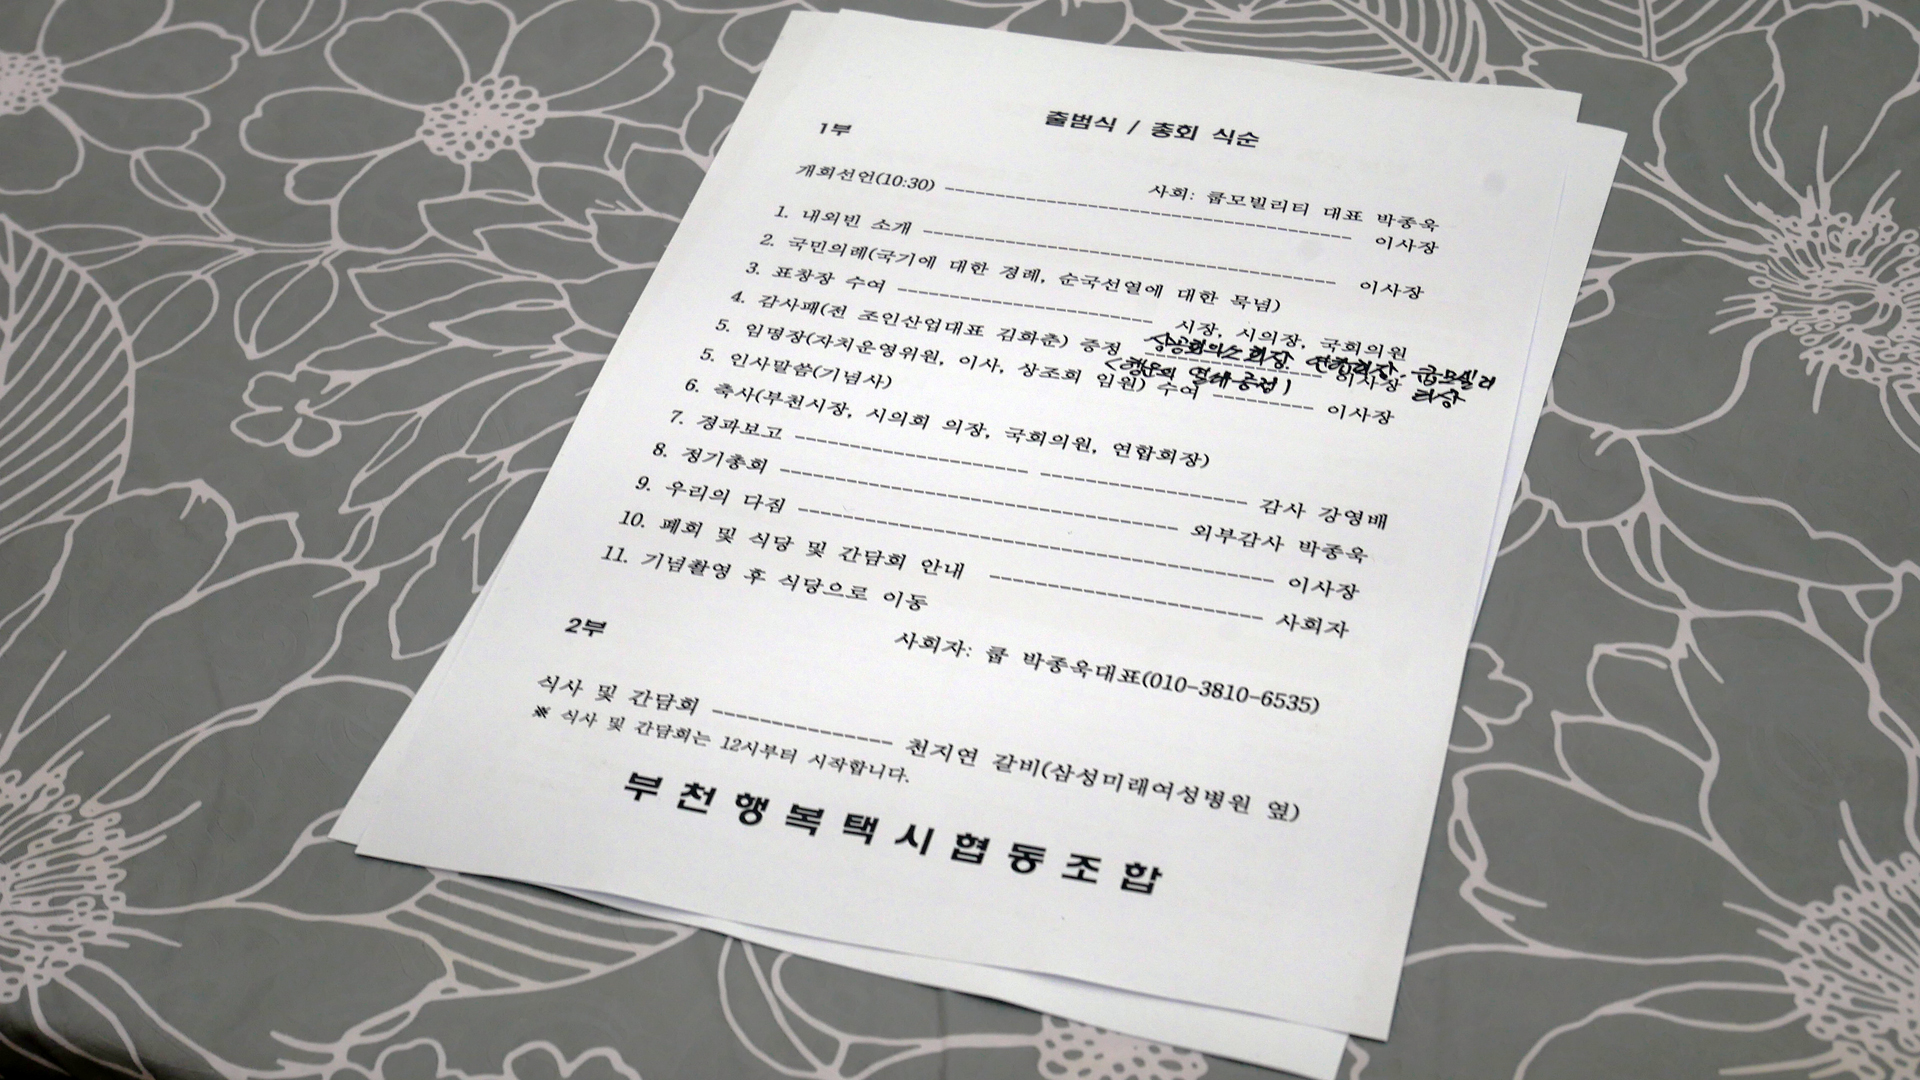 출범식 / 총회 식순
1부
사회: 쿱모빌리티 대표 박종욱
개회선언(10:30) ---------------------------------------- 이사장
1. 내외빈 소개 ---------------------------------------- 이사장
2. 국민의례(국기에 대한 경례, 순국선열에 대한 묵념)
3. 표창장 수여 ------------------------- 시장, 시의장, 국회의원
상공회의소 회장, 연합회장, 쿱모빌리티상
4. 감사패(전 조인산업대표 김화춘) 증정 ----------------- 이사장
<행운의 열쇠 증정)
5. 임명장(자치운영위원, 이사, 상조회 임원) 수여 ---------- 이사장
5. 인사말씀(기념사)
6. 축사(부천시장, 시의회 의장, 국회의원, 연합회장)
7. 경과보고 ----------------------- -------------------- 감사 강영배
8. 정기총회 --------------------------------------- 외부감사 박종욱
9. 우리의 다짐 ----------------------------------------------- 이사장
10. 폐회 및 식당 및 간담회 안내 --------------------------- 사회자
11. 기념촬영 후 식당으로 이동
2부
사회자: 쿱 박종욱대표(010-3810-6535)
식사 및 간담회 ------------------ 천지연 갈비(삼성미래여성병원 옆)
※ 식사 및 간담회는 12시부터 시작합니다.
부천행복택시협동조합